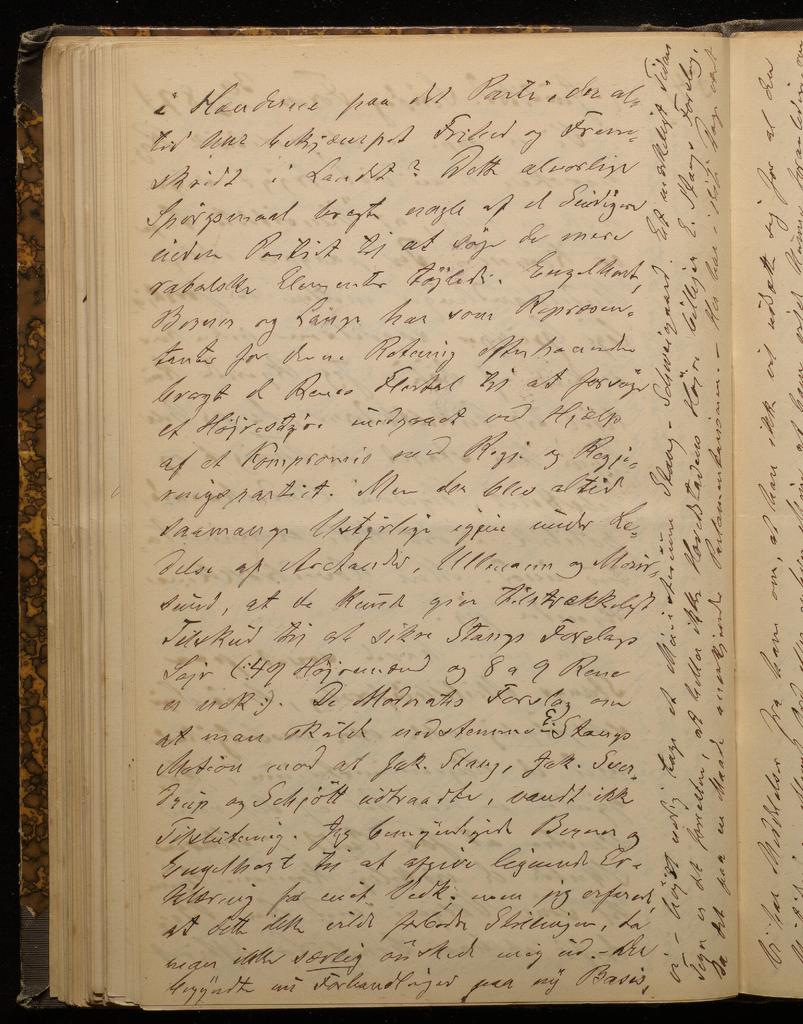 i Hænderne paa det Parti, der al-
tid har bekjæmpet Frihed og Frem-
skridt i Landet? Dette alvorlige
Spørgsmaal bragte nogle af de Lindigere
inden Partiet til at søge de mere
rabalske Elementer tøjlede. Engelhart,
Berner og Lange har som Repræsen-
tanter for denne Retning efterhaanden
bragt de Renes Flertal til at forsøge
et Højrestyre undgaaet ved Hjælp
af et Kompromis med Regje- og Regje-
ringspartiet. Men der blev altid
saamange Ustyrlige igjen under Le-
delse af Arctander, Ullmann og Mørir,
sund, at de kunde give tilstrækkeligt
Tilskud til at sikre Stangs Forslags
Sejr (: 49 Højremænd og 8 a 9 Rene
er nok :). De Moderates Forslag om
at man skulde nedstemme E. Stangs
Motion mod at Jak. Stang, Jak. Sver-
drup og Schjøtt udtraadte, vandt ikke
Tilslutning. Jeg bemyndigede Berner og
Engelhart til at afgive lignende Er-
klæring for mit Vedk., men jeg erfared,
at dette ikke vilde forbedre Stillingen, da
man ikke særlig ønskede mig ud. – Der
begyndte nu Forhandlinger paa ny Basis,
vi – højst uærlig tage et Ministerium Stang-Schweigaard. Et mærkeligt Tidens
Tegn er det forresten, at heller ikke Hovedstadens Højre billiger E. Stangs Forslag,
da det paa en Maade anerkjende Parlamentarismen. –